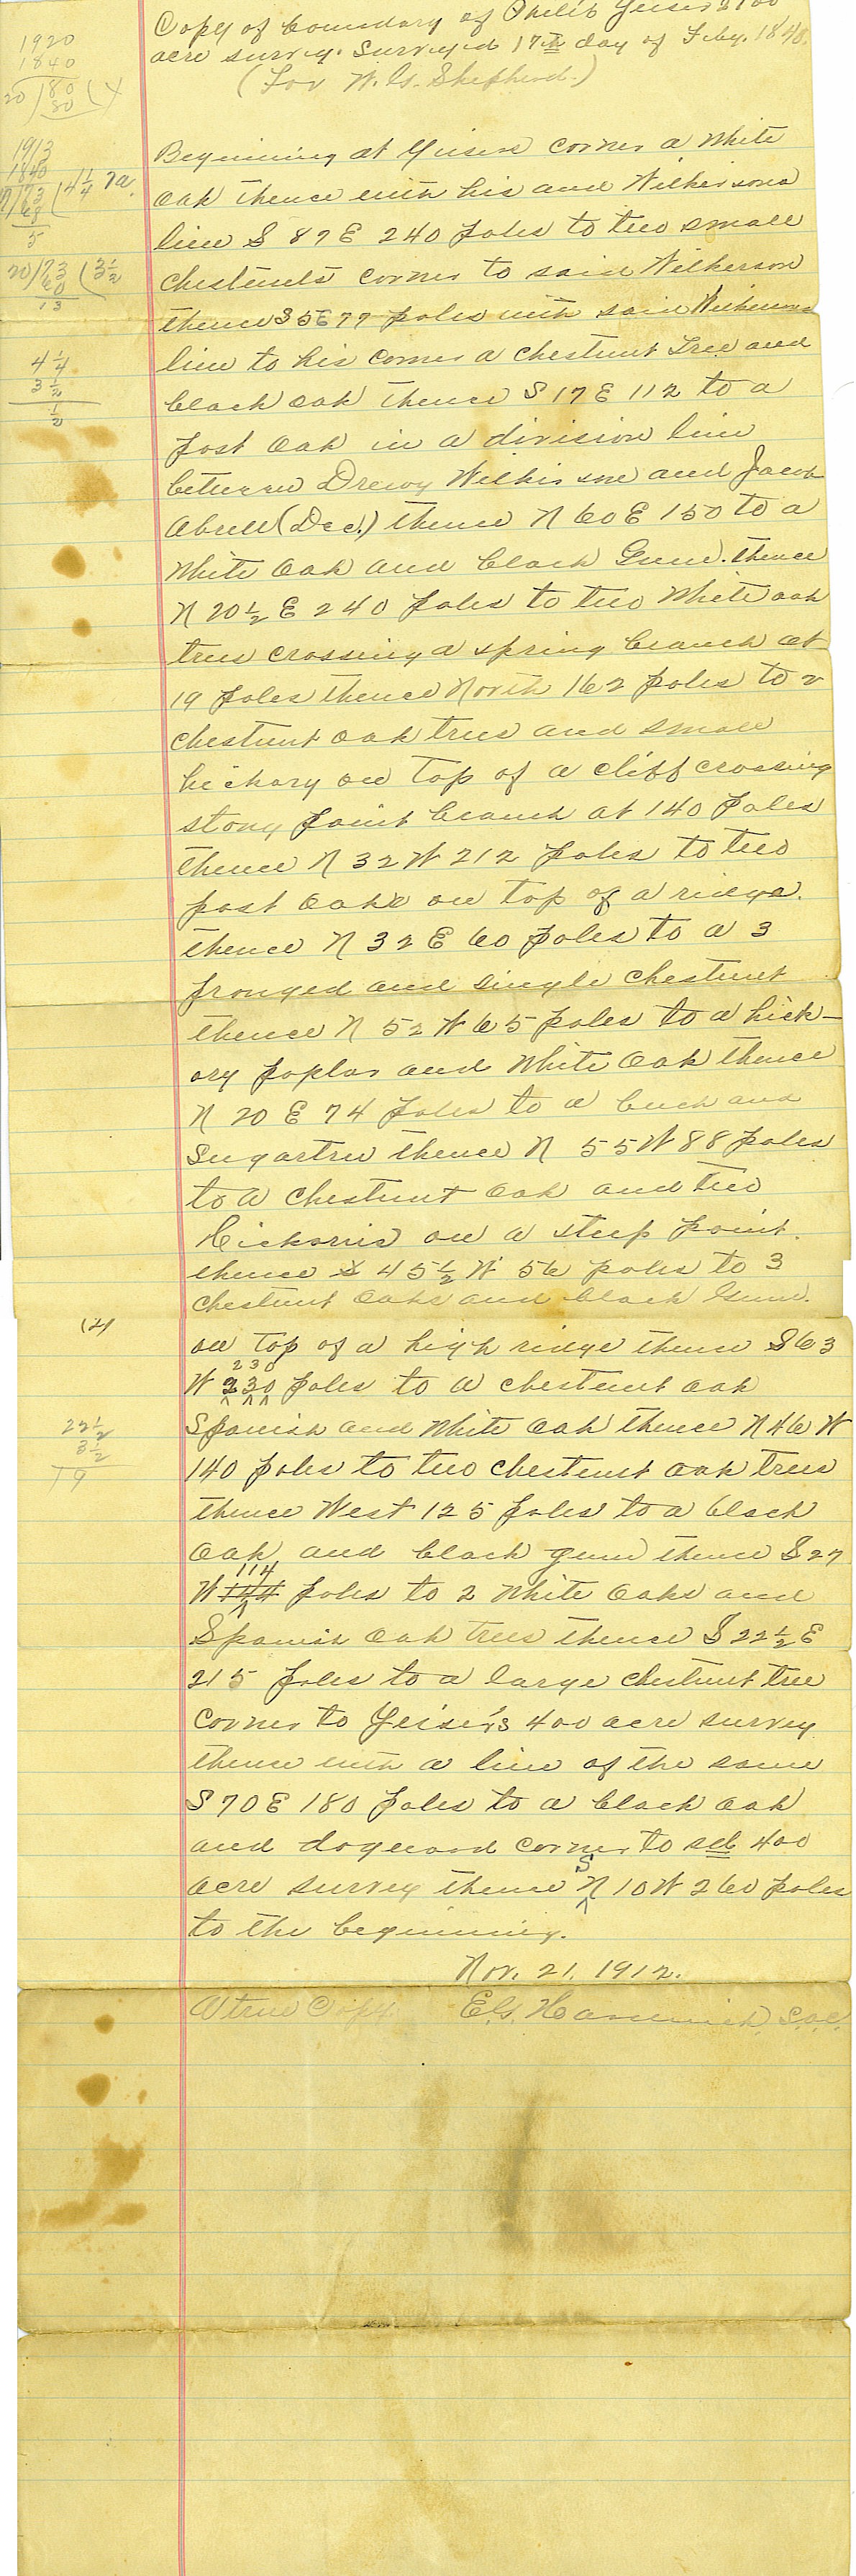 Copy of boundary of Philip Geisers 2100
acre survey. Surveyed 17th day of Feby. 1840.
(For W. G. Shepherd.)
1920
1840
20/80(4
80
1913
1840
17/73(4 1/4 7a.
68
5
20/73(3 1/2
60
13
4 1/4
3 1/2
1/2
Beginning at Geisers corner a White
oak thence with his and Wilkersons
line S 87 E 240 poles to two small
chestnuts corner to said Wilkerson
thence S 5 E 77 poles with said Wilkersons
line to his corner a chestnut Tree and
black oak thence S 17 E 112 to a
post oak in a division line
between Drewy Wilkisone and Jacob
Abrell (Dec.) thence N 60 E 150 to a
White oak and black Gum. thence
N 20 1/2 E 240 poles to two White oak
trees crossing a spring branch at
19 poles thence North 162 poles to 2
chestnut oak trees and small
hickory on top of a cliff crossing
stony point branch at 140 poles
thence N 32 W 212 poles to two
post oaks on top of a ridge.
thence N 32 E 60 poles to a 3
pronged and single chestnut
thence N 52 W 65 poles to a hick-
ory poplar and White oak thence
N 20 E 74 poles to a buck and
Sugartree thence N 55 W 88 poles
to a chestnut oak and two
hickories on a steep point.
thence S 45 1/2 W 56 poles to 3
chestnut oaks and black Gum.
(2)
on top of a high ridge thence S 63
230
W 230 poles to a chestnut oak
22 1/2
3 1/2
19
Spanish and White oak thence N 46 W
140 poles to two chestnut oak trees
thence West 125 poles to a black
oak and black gum thence S 27
114
W 144 poles to 2 White oaks and
Spanish oak trees thence S 22 1/2 E
215 poles to a large chestnut tree
corner to Geiser's 400 acre survey
thence with a line of the same
S 70 E 180 poles to a black oak
and dogwood corner to sd. 400
S
acre survey thence N 10 W 260 poles
to the beginning.
Nov. 21, 1912.
A true Copy E.S.